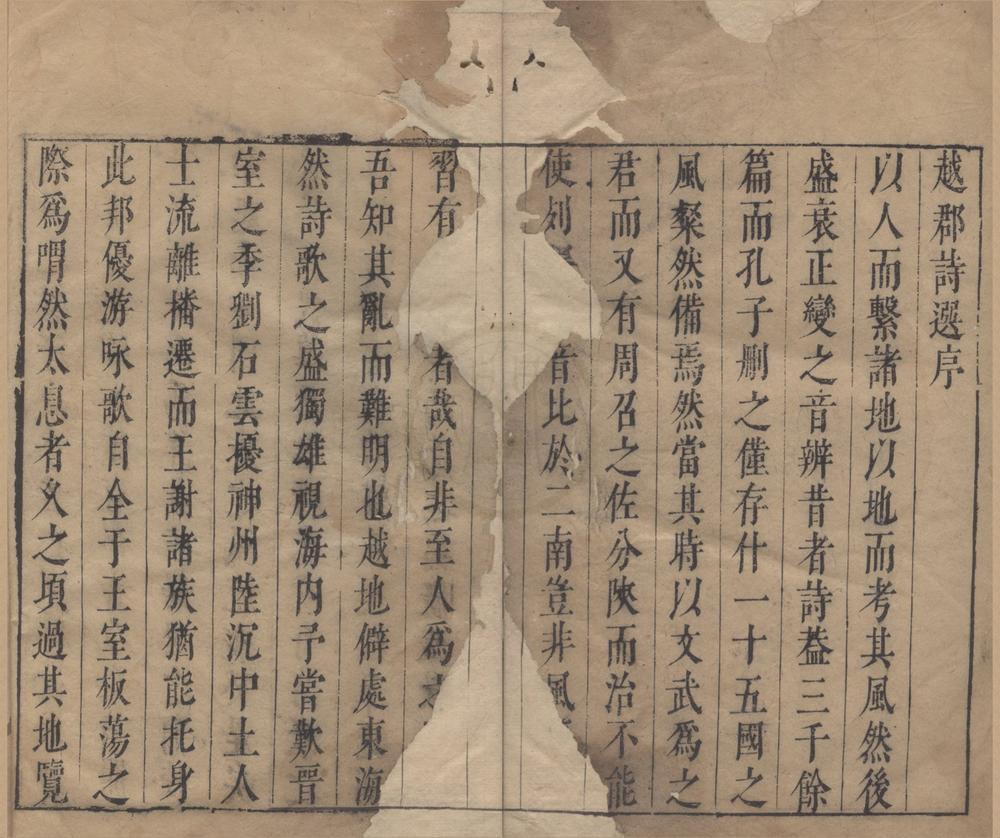 越郡詩選序
以人而繫諸地以地而考其風然後
盛衰正變之音辨昔者詩葢三千餘
篇而孔子刪之僅存什一十五國之
風粲然備焉然當其時以文武爲之
君而又有周召之佐分陝而治不能
使列音比於二南豈非風
習有者哉自非至人爲之
吾知其亂而難明也越地僻處東海
然詩歌之盛獨雄視海内予嘗歎晉
室之季劉石雲擾神州陸沉中土人
士流離播遷而王謝諸族猶能托身
此邦優游咏歌自全于王室板蕩之
際爲喟然太息者久之頃過其地覽